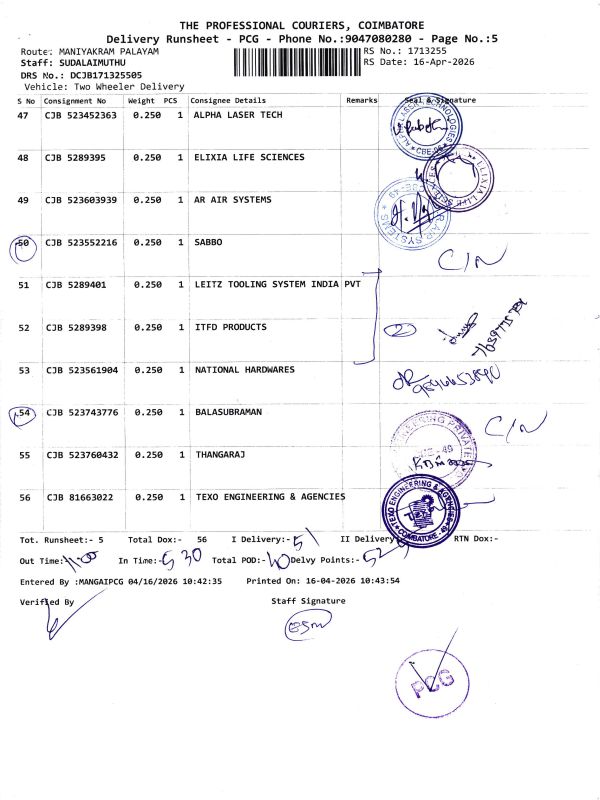 THE PROFESSIONAL COURIERS, COIMBATORE
Delivery Runsheet - PCG - Phone No.:9047080280 - Page No.:5
Route: MANIYAKRAM PALAYAM RS No.: 1713255
Staff: SUDALAIMUTHU RS Date: 16-Apr-2026
DRS No.: DCJB171325505
Vehicle: Two Wheeler Delivery
S No Consignment No Weight PCS Consignee Details Remarks Seal & Signature
47 CJB 523452363 0.250 1 ALPHA LASER TECH
48 CJB 5289395 0.250 1 ELIXIA LIFE SCIENCES
49 CJB 523603939 0.250 1 AR AIR SYSTEMS
50 CJB 523552216 0.250 1 SABBO C/N
51 CJB 5289401 0.250 1 LEITZ TOOLING SYSTEM INDIA PVT
52 CJB 5289398 0.250 1 ITFD PRODUCTS 2
53 CJB 523561904 0.250 1 NATIONAL HARDWARES
54 CJB 523743776 0.250 1 BALASUBRAMAN C/N
55 CJB 523760432 0.250 1 THANGARAJ
56 CJB 81663022 0.250 1 TEXO ENGINEERING & AGENCIES
TEXO ENGINEERING & AGENCIES COIMBATORE - 49
Tot. Runsheet:- 5 Total Dox:- 56 I Delivery:- 51 II Delivery RTN Dox:-
Out Time:- 11-00 In Time:- 5 30 Total POD:- 40 Delvy Points:- 52
Entered By :MANGAIPCG 04/16/2026 10:42:35 Printed On: 16-04-2026 10:43:54
Verified By Staff Signature
PCG